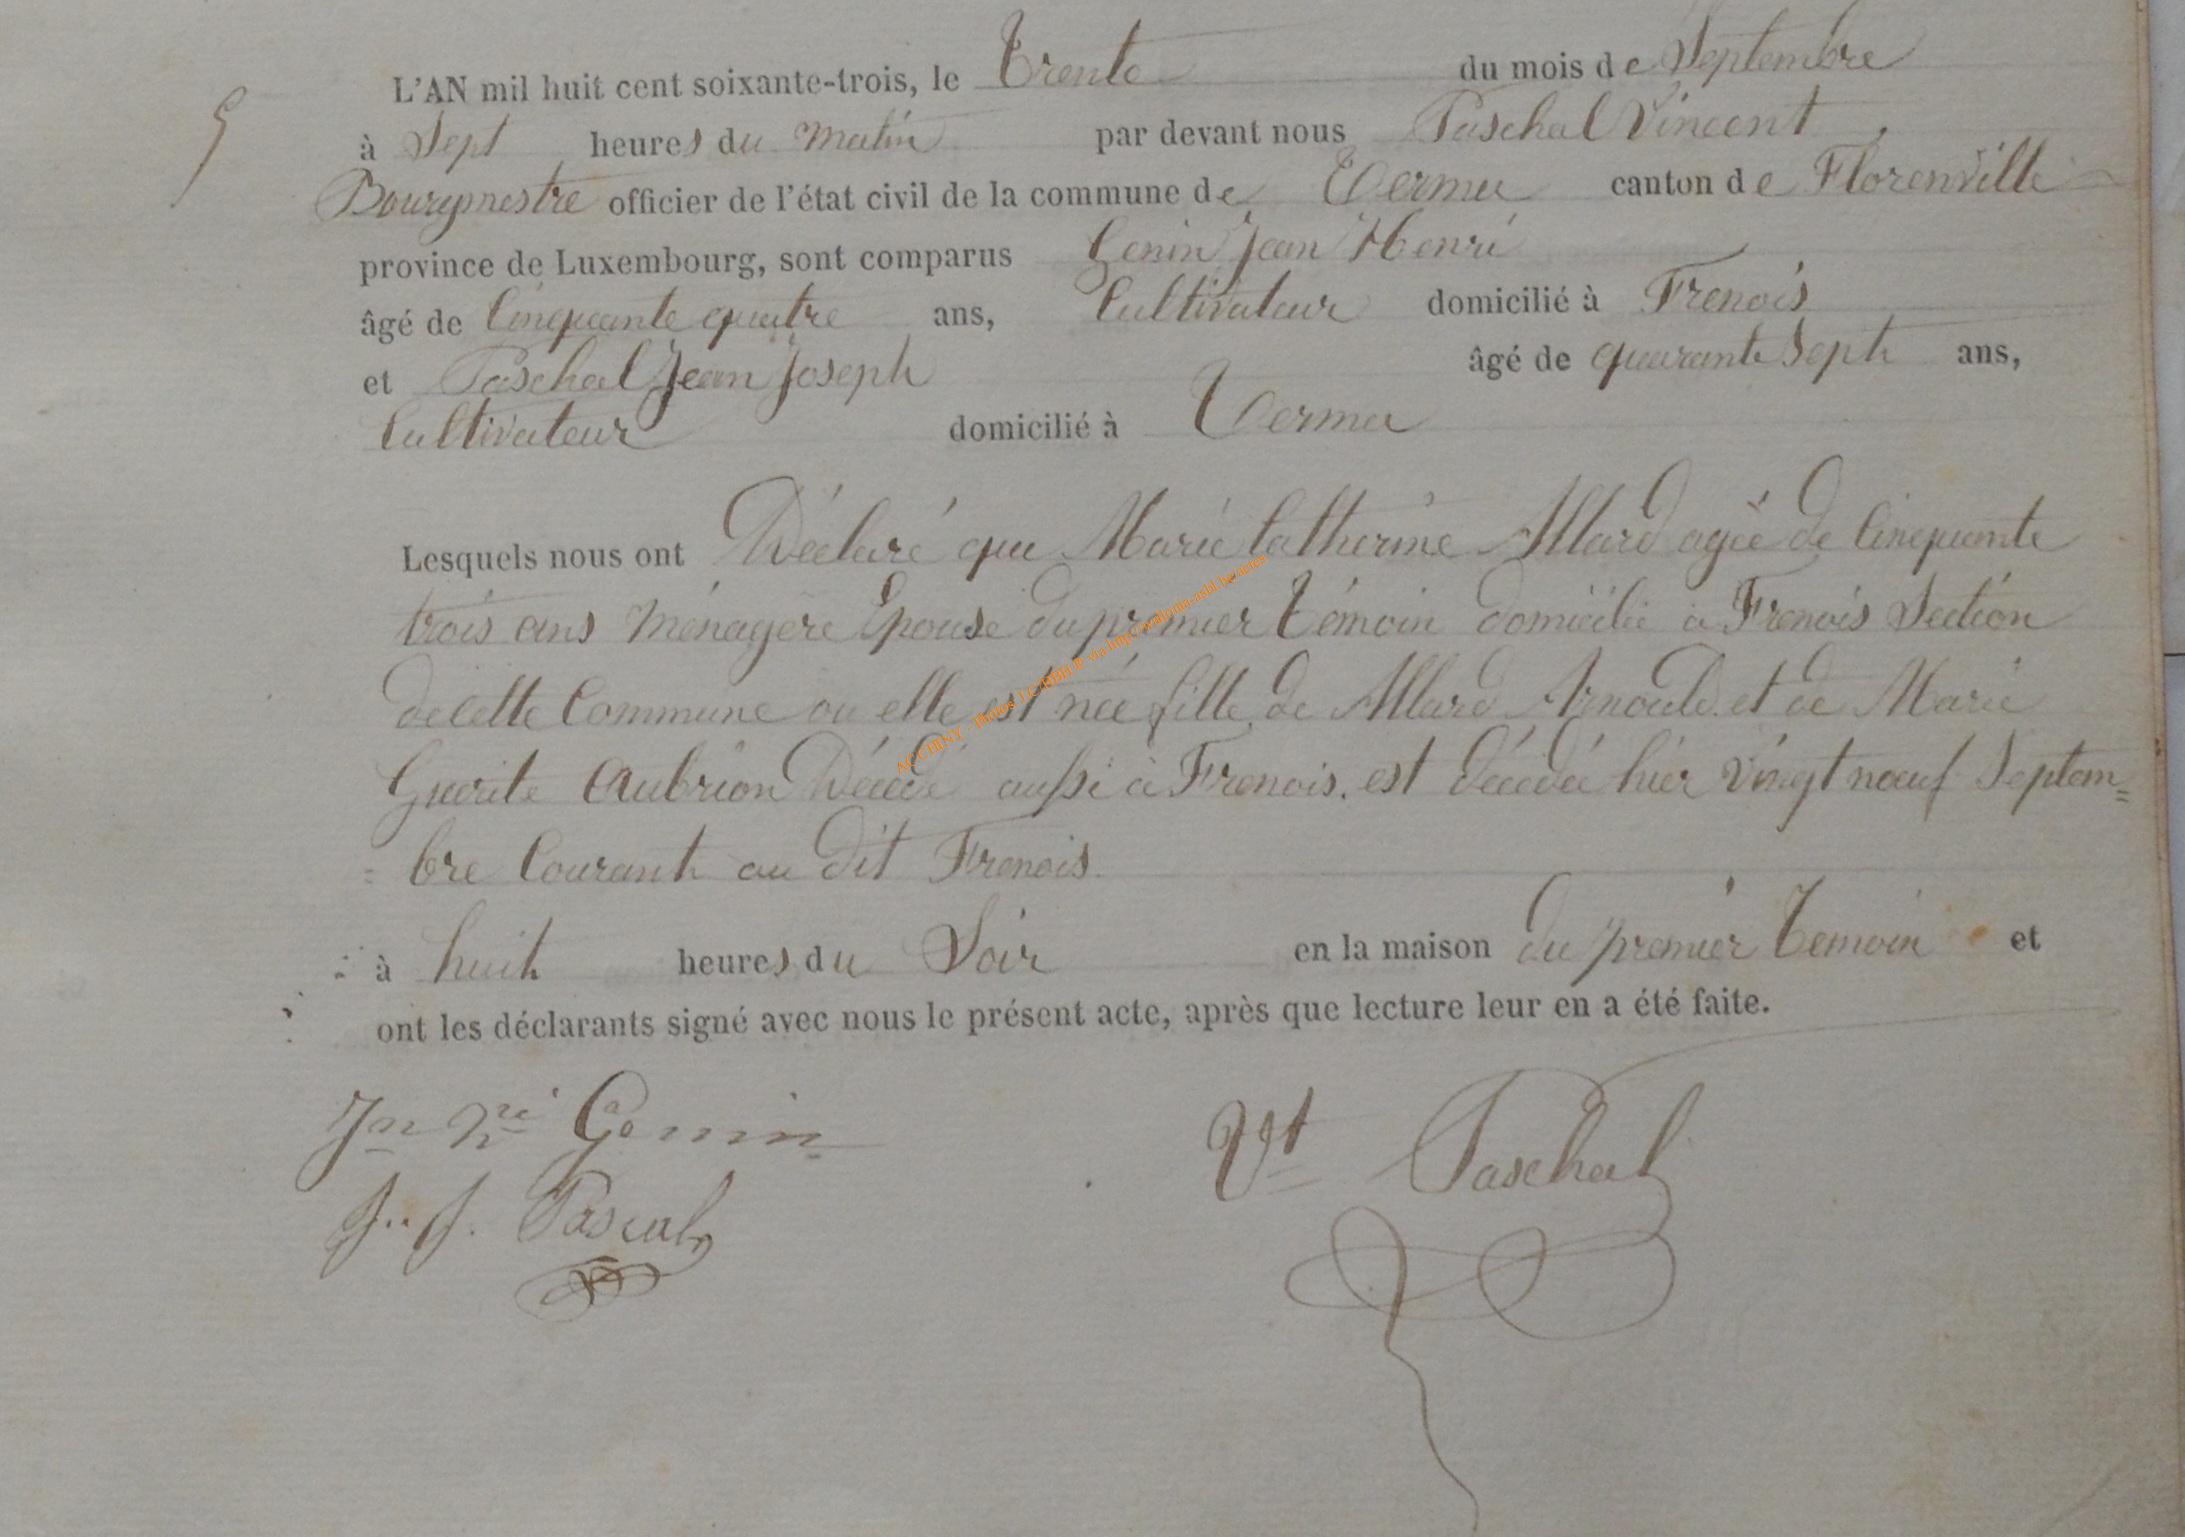 L'AN mil huit cent soixante-trois, le Trente du mois de Septembre
9
à Sept heures du matin par devant nous Paschal Vincent
Bourgmestre officier de l'état civil de la commune de Termes canton de Florenville
province de Luxembourg, sont comparus Genin Jean Henri
âgé de Cinquante quatre ans, Cultivateur domicilié à Frenois
et Paschal Jean Joseph âgé de quarante Sept ans,
Cultivateur domicilié à Termes
Lesquels nous ont Déclaré que Marie Catherine Allard agée de Cinquante
trois ans Ménagère Epouse du premier Témoin domicilié à Frenois Section
de cette Commune ou elle est née fille de Allard Arnould et de Marie
Guerite Aubrion Décédé aussi à Frenois. est décédée hier vingt nœuf Septem=
= bre Courant au dit Frenois
à huit heures du Soir en la maison du premier Temoin et
ont les déclarants signé avec nous le présent acte, après que lecture leur en a été faite.
Jn hri Genin Vt Paschal
J.. J. Pascal